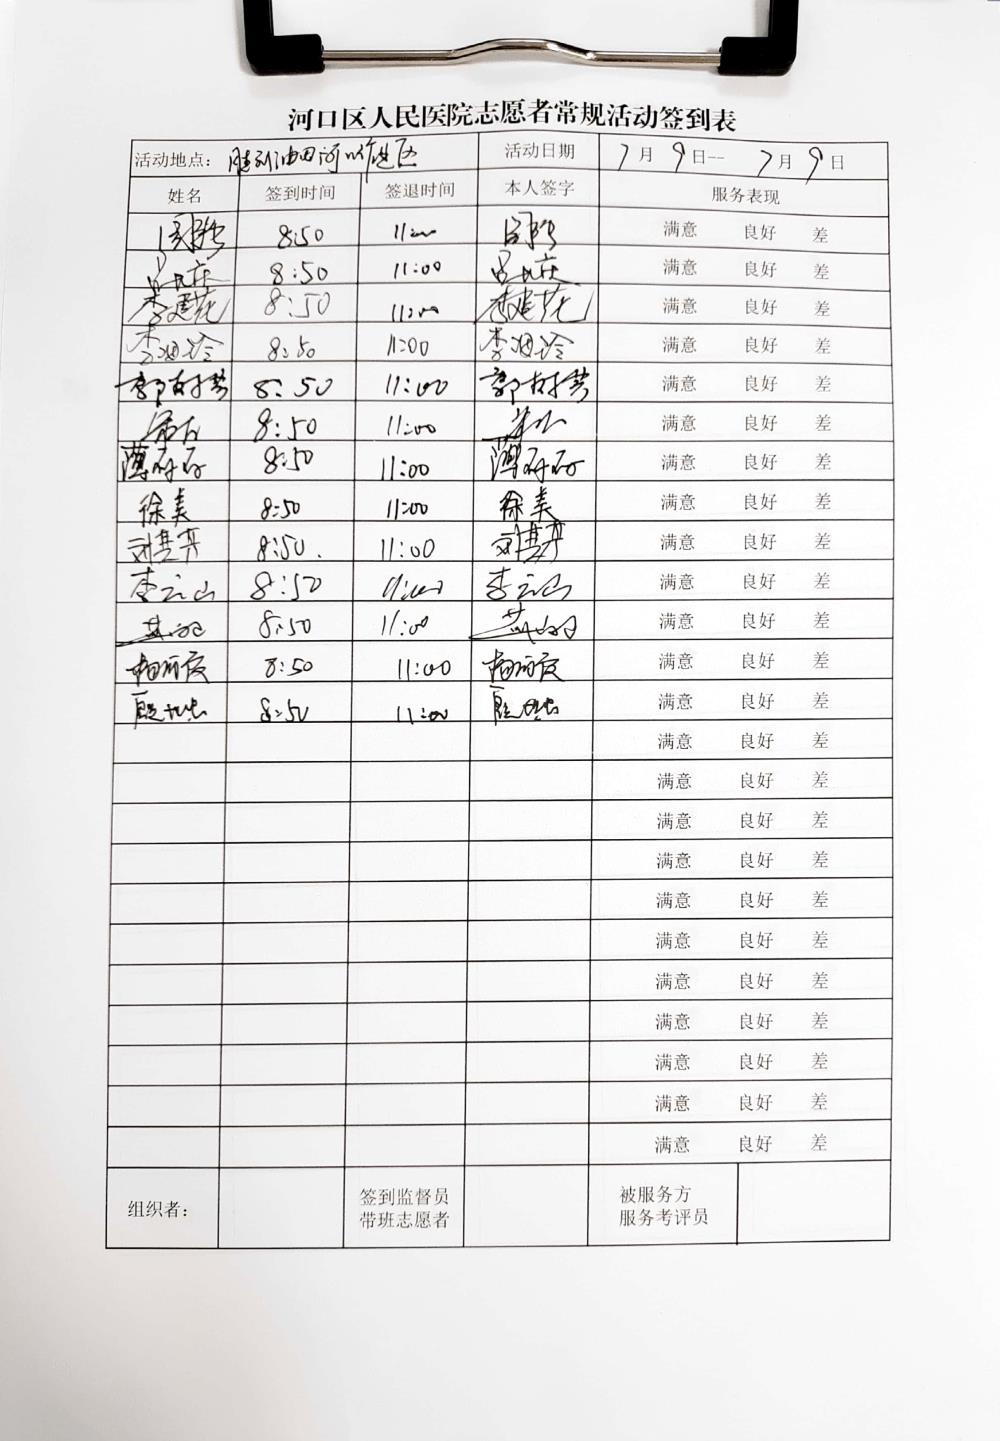 河口区人民医院志愿者常规活动签到表
活动地点：胜利油田河口作业区 活动日期 7月9日--7月9日
姓名 签到时间 签退时间 本人签字 服务表现
8:50 11:00 满意 良好 差
8:50 11:00 满意 良好 差
李建花 8:50 11:00 李建花 满意 良好 差
8:50 11:00 满意 良好 差
郭树芳 8:50 11:00 郭树芳 满意 良好 差
8:50 11:00 满意 良好 差
8:50 11:00 满意 良好 差
徐美 8:50 11:00 徐美 满意 良好 差
刘慧丹 8:50. 11:00 刘慧丹 满意 良好 差
李云山 8:50 11:00 李云山 满意 良好 差
8:50 11:00 满意 良好 差
杨丽霞 8:50 11:00 杨丽霞 满意 良好 差
8:50 11:00 满意 良好 差
满意 良好 差
满意 良好 差
满意 良好 差
满意 良好 差
满意 良好 差
满意 良好 差
满意 良好 差
满意 良好 差
满意 良好 差
满意 良好 差
满意 良好 差
组织者： 签到监督员 被服务方
带班志愿者 服务考评员